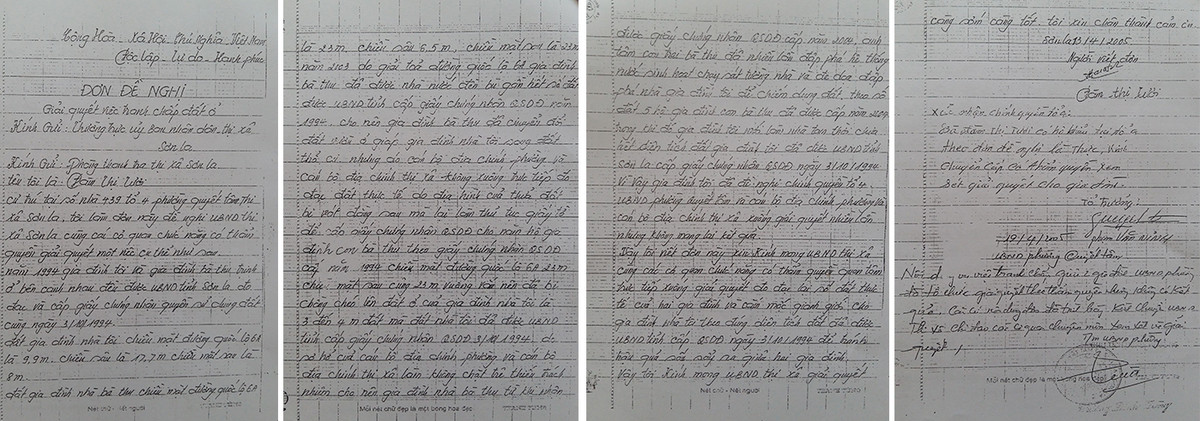 Cộng Hoà - Xã Hội Chủ Nghĩa Việt Nam
Độc lập - Tự do - Hạnh phúc
ĐƠN ĐỀ NGHỊ
Giải quyết việc tranh chấp đất ở
Kính Gửi: Thường trực uỷ ban nhân dân thị xã
Sơn la
Kính Gửi: Phòng thanh tra thị xã Sơn la
tên tôi là:
cư trú tại số nhà 439 tổ 4 phường quyết tâm thị
xã Sơn la, tôi làm đơn này đề nghị UBND thị
xã Sơn la cùng các cơ quan chức năng có thẩm
quyền giải quyết một việc cụ thể như sau
năm 1994 gia đình tôi và gia đình bà thu, trình
ở bên cạnh nhau đều được UBND tỉnh Sơn la đo
đạc và cấp giấy chứng nhận quyền sử dụng đất
cùng ngày 31/10/1994.
đất gia đình nhà tôi chiều mặt đường quốc lộ 6A
là 9,9m. chiều sâu là 17,7m chiều mặt sau là
8m.
đất gia đình nhà bà thu chiều mặt đường quốc lộ 6A
Nét chữ - Nết người
là 23m. chiều sâu 6,5m, chiều mặt sau là 23m
năm 2003 do giải toả đường quốc lộ 6A gia đình
bà thu đã được nhà nước đền bù gần hết số đất
được UBND tỉnh cấp giấy chứng nhận QSDĐ năm
1994. cho nên gia đình bà thu đã chuyển đổi
đất vườn ở giáp gia đình nhà tôi sang đất
thổ cư. nhưng do cán bộ địa chính phường và
cán bộ địa chính thị xã không xuống trực tiếp đo
đạc đất thực tế do địa hình của thửa đất
bị vát chéo sau mà lại làm thủ tục giấy tờ
để cấp giấy chứng nhận QSDĐ cho năm hộ gia
đình con bà thu theo giấy chứng nhận QSDĐ
cấp năm 1994 chiều mặt đường quốc lộ 6A 23m
chiều mặt sau cũng 23m vuông vắn nên đã bị
chồng chéo lên đất ở của gia đình nhà tôi là
3 đến 4m đất mà đất nhà tôi đã được UBND
tỉnh cấp giấy chứng nhận QSDĐ 31/10/1994. do
sơ hở của cán bộ địa chính phường và cán bộ
địa chính thị xã làm không chặt chẽ thiếu trách
nhiệm cho nên gia đình nhà bà thu từ khi nhận
Mỗi nét chữ đẹp là một bông hoa đẹp
được giấy chứng nhận QSDĐ cấp năm 2004, anh
tâm con trai bà thu đã nhiều lần đập phá hệ thống
nước sinh hoạt chạy sát tường nhà và đe doạ đập
phá nhà gia đình tôi để chiếm dụng đất, theo số
đất 5 hộ gia đình con bà thu đã được cấp năm 2004
trong khi đó gia đình tôi
hết diện tích đất gia đình tôi đã được UBND tỉnh
Sơn la cấp giấy chứng nhận QSDĐ ngày 31/10/1994
Vì vậy gia đình tôi đã đề nghị chính quyền tổ 4.
UBND phường quyết tâm và cán bộ địa chính phường và
cán bộ địa chính thị xã xuống giải quyết nhiều lần
nhưng không mang lại kết quả.
Vậy tôi viết đơn này xin kính mong UBND thị xã
cùng các cơ quan chức năng có thẩm quyền quan tâm
trực tiếp xuống giải quyết đo đạc lại số đất thực
tế của hai gia đình và cắm mốc gianh giới cho
gia đình nhà tôi theo đúng diện tích đất đã được
UBND tỉnh cấp QSDĐ ngày 31/10/1994 để tránh
hậu quả xấu xảy ra giữa hai gia đình.
Vậy tôi kính mong UBND thị xã giải quyết
Mỗi nét chữ đẹp là một bông hoa đẹp
Nét chữ - Nết người
càng sớm càng tốt. tôi xin chân thành cảm ơn
Sơn la 13/4/2005
Người viết đơn
Xác nhận chính quyền tổ 4:
theo đơn đề nghị là Thực, Kính
chuyển cấp có thẩm quyền xem
xét giải quyết cho gia đình.
Tổ Trưởng:
19/4/2005
UBND phường Quyết tâm
Nội d. vụ việc tranh chấp giữa 2 gia đình UBND phường
đã tổ chức giải quyết theo thẩm quyền nhưng không có kết
quả.
quyết.
TM UBND phường
Mỗi nét chữ đẹp là một bông hoa đẹp